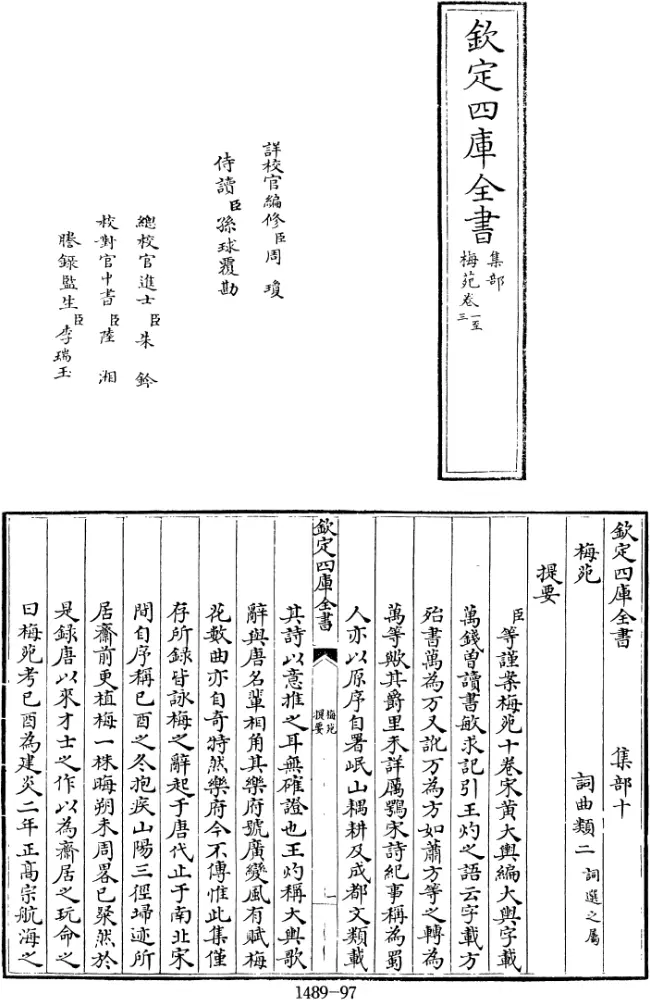 欽定四庫全書
集部
梅苑卷一至三
詳校官編修臣周瓊
侍讀臣孫球覆勘
總校官進士臣朱鈐
校對官中書臣陸湘
謄錄監生臣李瑞玉
欽定四庫全書 集部十
梅苑 詞曲類二 詞選之屬
提要
臣等謹案梅苑十卷宋黃大輿編大輿字載
萬錢曾讀書敏求記引王灼之語云字載方
殆書萬為万又訛万為方如蕭方等之轉為
萬等歟其爵里未詳厲鶚宋詩紀事稱為蜀
人亦以原序自署岷山耦耕及成都文類載
欽定四庫全書
梅苑
提要
一
其詩以意推之耳無確證也王灼稱大輿歌
辭與唐名輩相角其樂府號廣變風有賦梅
花數曲亦自奇特然樂府今不傳惟此集僅
存所録皆詠梅之辭起于唐代止于南北宋
間自序稱已酉之冬抱疾山陽三徑掃迹所
居齋前更植梅一株晦朔未周畧已粲然於
是録唐以來才士之作以為齋居之玩命之
曰梅苑考已酉為建炎二年正高宗航海之
1489-97